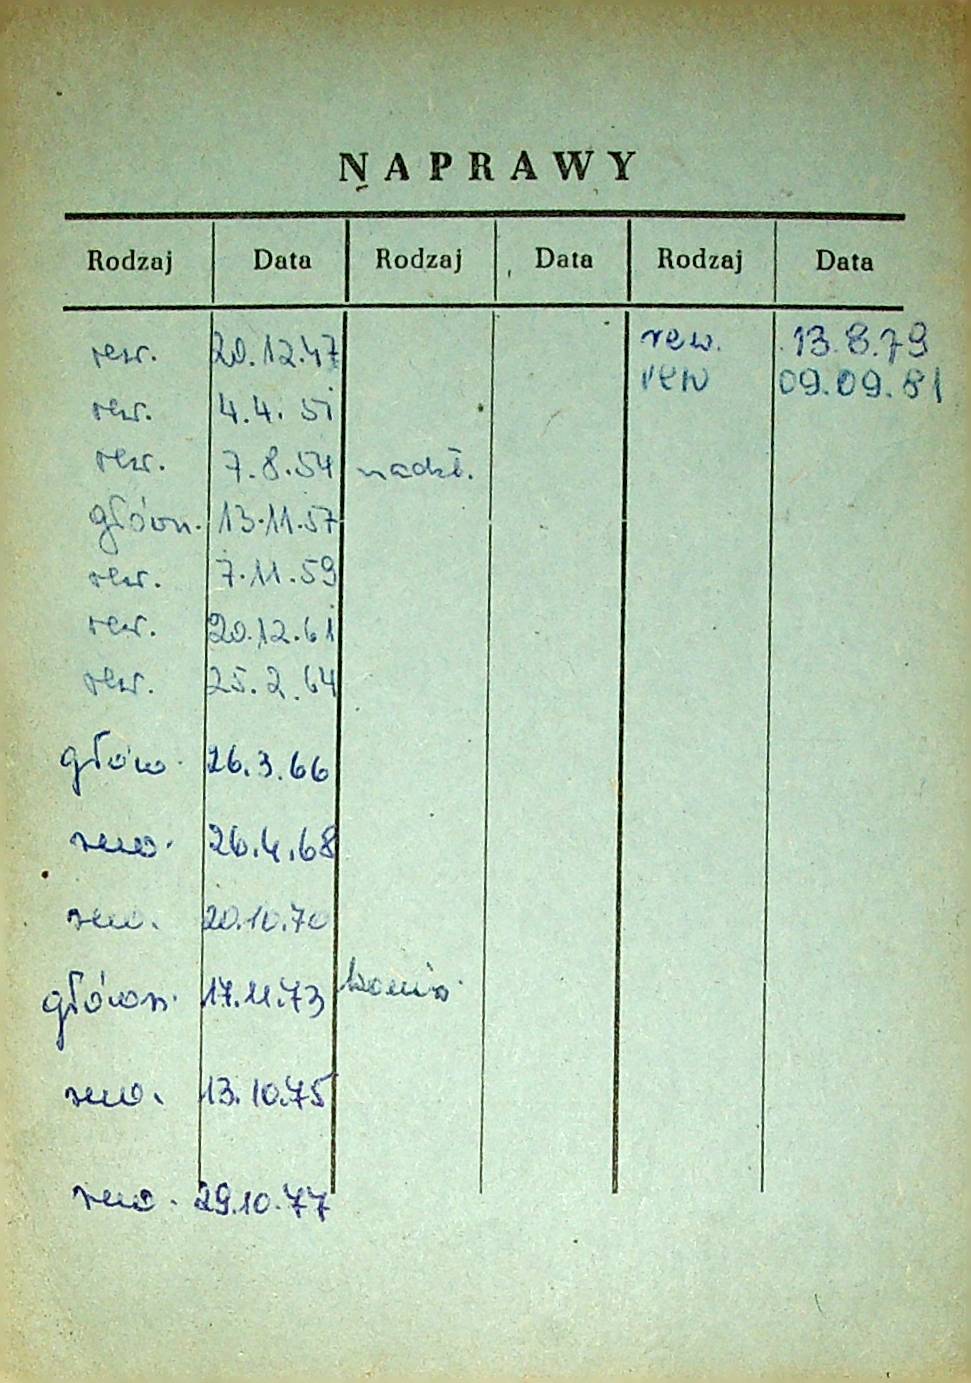 NAPRAWY
Rodzaj Data Rodzaj Data Rodzaj Data
rew. 20.12.47 rew. 13.8.79
rew 09.09.81
rew. 4.4.51
rew. 7.8.54 nadzł.
główn. 13.11.57
rew. 7.11.59
rew. 20.12.61
rew. 25.2.64
główn. 26.3.66
rew. 26.4.68
rew. 20.10.70
główn. 17.11.73
rew. 13.10.75
rew. 29.10.77